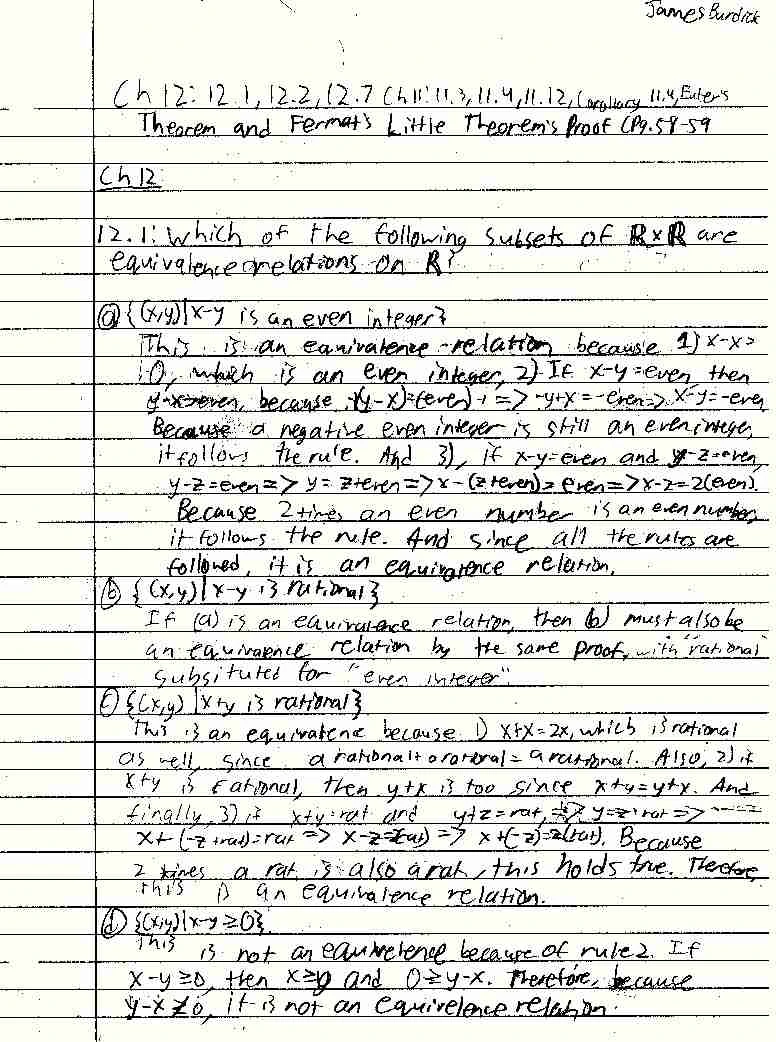 James Burdick
Ch 12: 12.1, 12.2, 12.7 Ch 11: 11.3, 11.4, 11.12, Corollary 11.4, Euler's
Theorem and Fermat's Little Theorem's Proof (Pg. 58-59
Ch 12
12.1: Which of the following subsets of R×R are
equivalence relations on R?
(a) {(x,y)|x-y is an even integer}
This is an equivalence relation because 1) x-x=
0, which is an even integer, 2) If x-y=even, then
y-x=even, because -(y-x)=(even)-1 => -y+x=-even=> x-y=-even
Because a negative even integer is still an even integer,
it follows the rule. And 3), if x-y=even and y-z=even,
y-z=even=> y=z+even=>x-(z+even)=even=>x-z=2(even).
Because 2 times an even number is an even number,
it follows the rule. And since all the rules are
followed, it is an equivalence relation.
(b) {(x,y)|x-y is rational}
If (a) is an equivalence relation, then (b) must also be
an equivalence relation by the same proof, with "rational"
substituted for "even integer".
(c) {(x,y)|x+y is rational}
This is an equivalence because 1) x+x=2x, which is rational
as well, since a rational+a rational=a rational. Also, 2) if
x+y is rational, then y+x is too since x+y=y+x. And
finally, 3) if x+y=rat and y+z=rat, =>
x+(-z+rat)=rat => x-z=2(rat) => x+(-z)=2(rat). Because
2 times a rat is also a rat, this holds true. Therefore,
this is an equivalence relation.
(d) {(x,y)|x-y≥0}
This is not an equivelence because of rule 2. If
x-y≥0, then x≥y and 0≥y-x. Therefore, because
y-x≱0, it is not an equivelence relation.